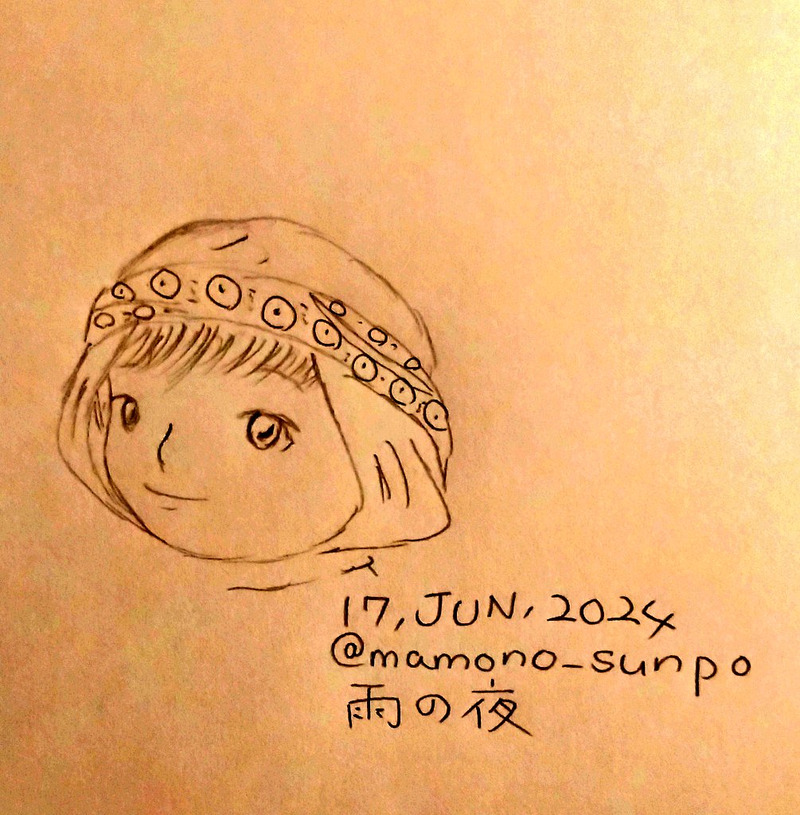 17, JUN, 2024
@mamono_sunpo
雨の夜